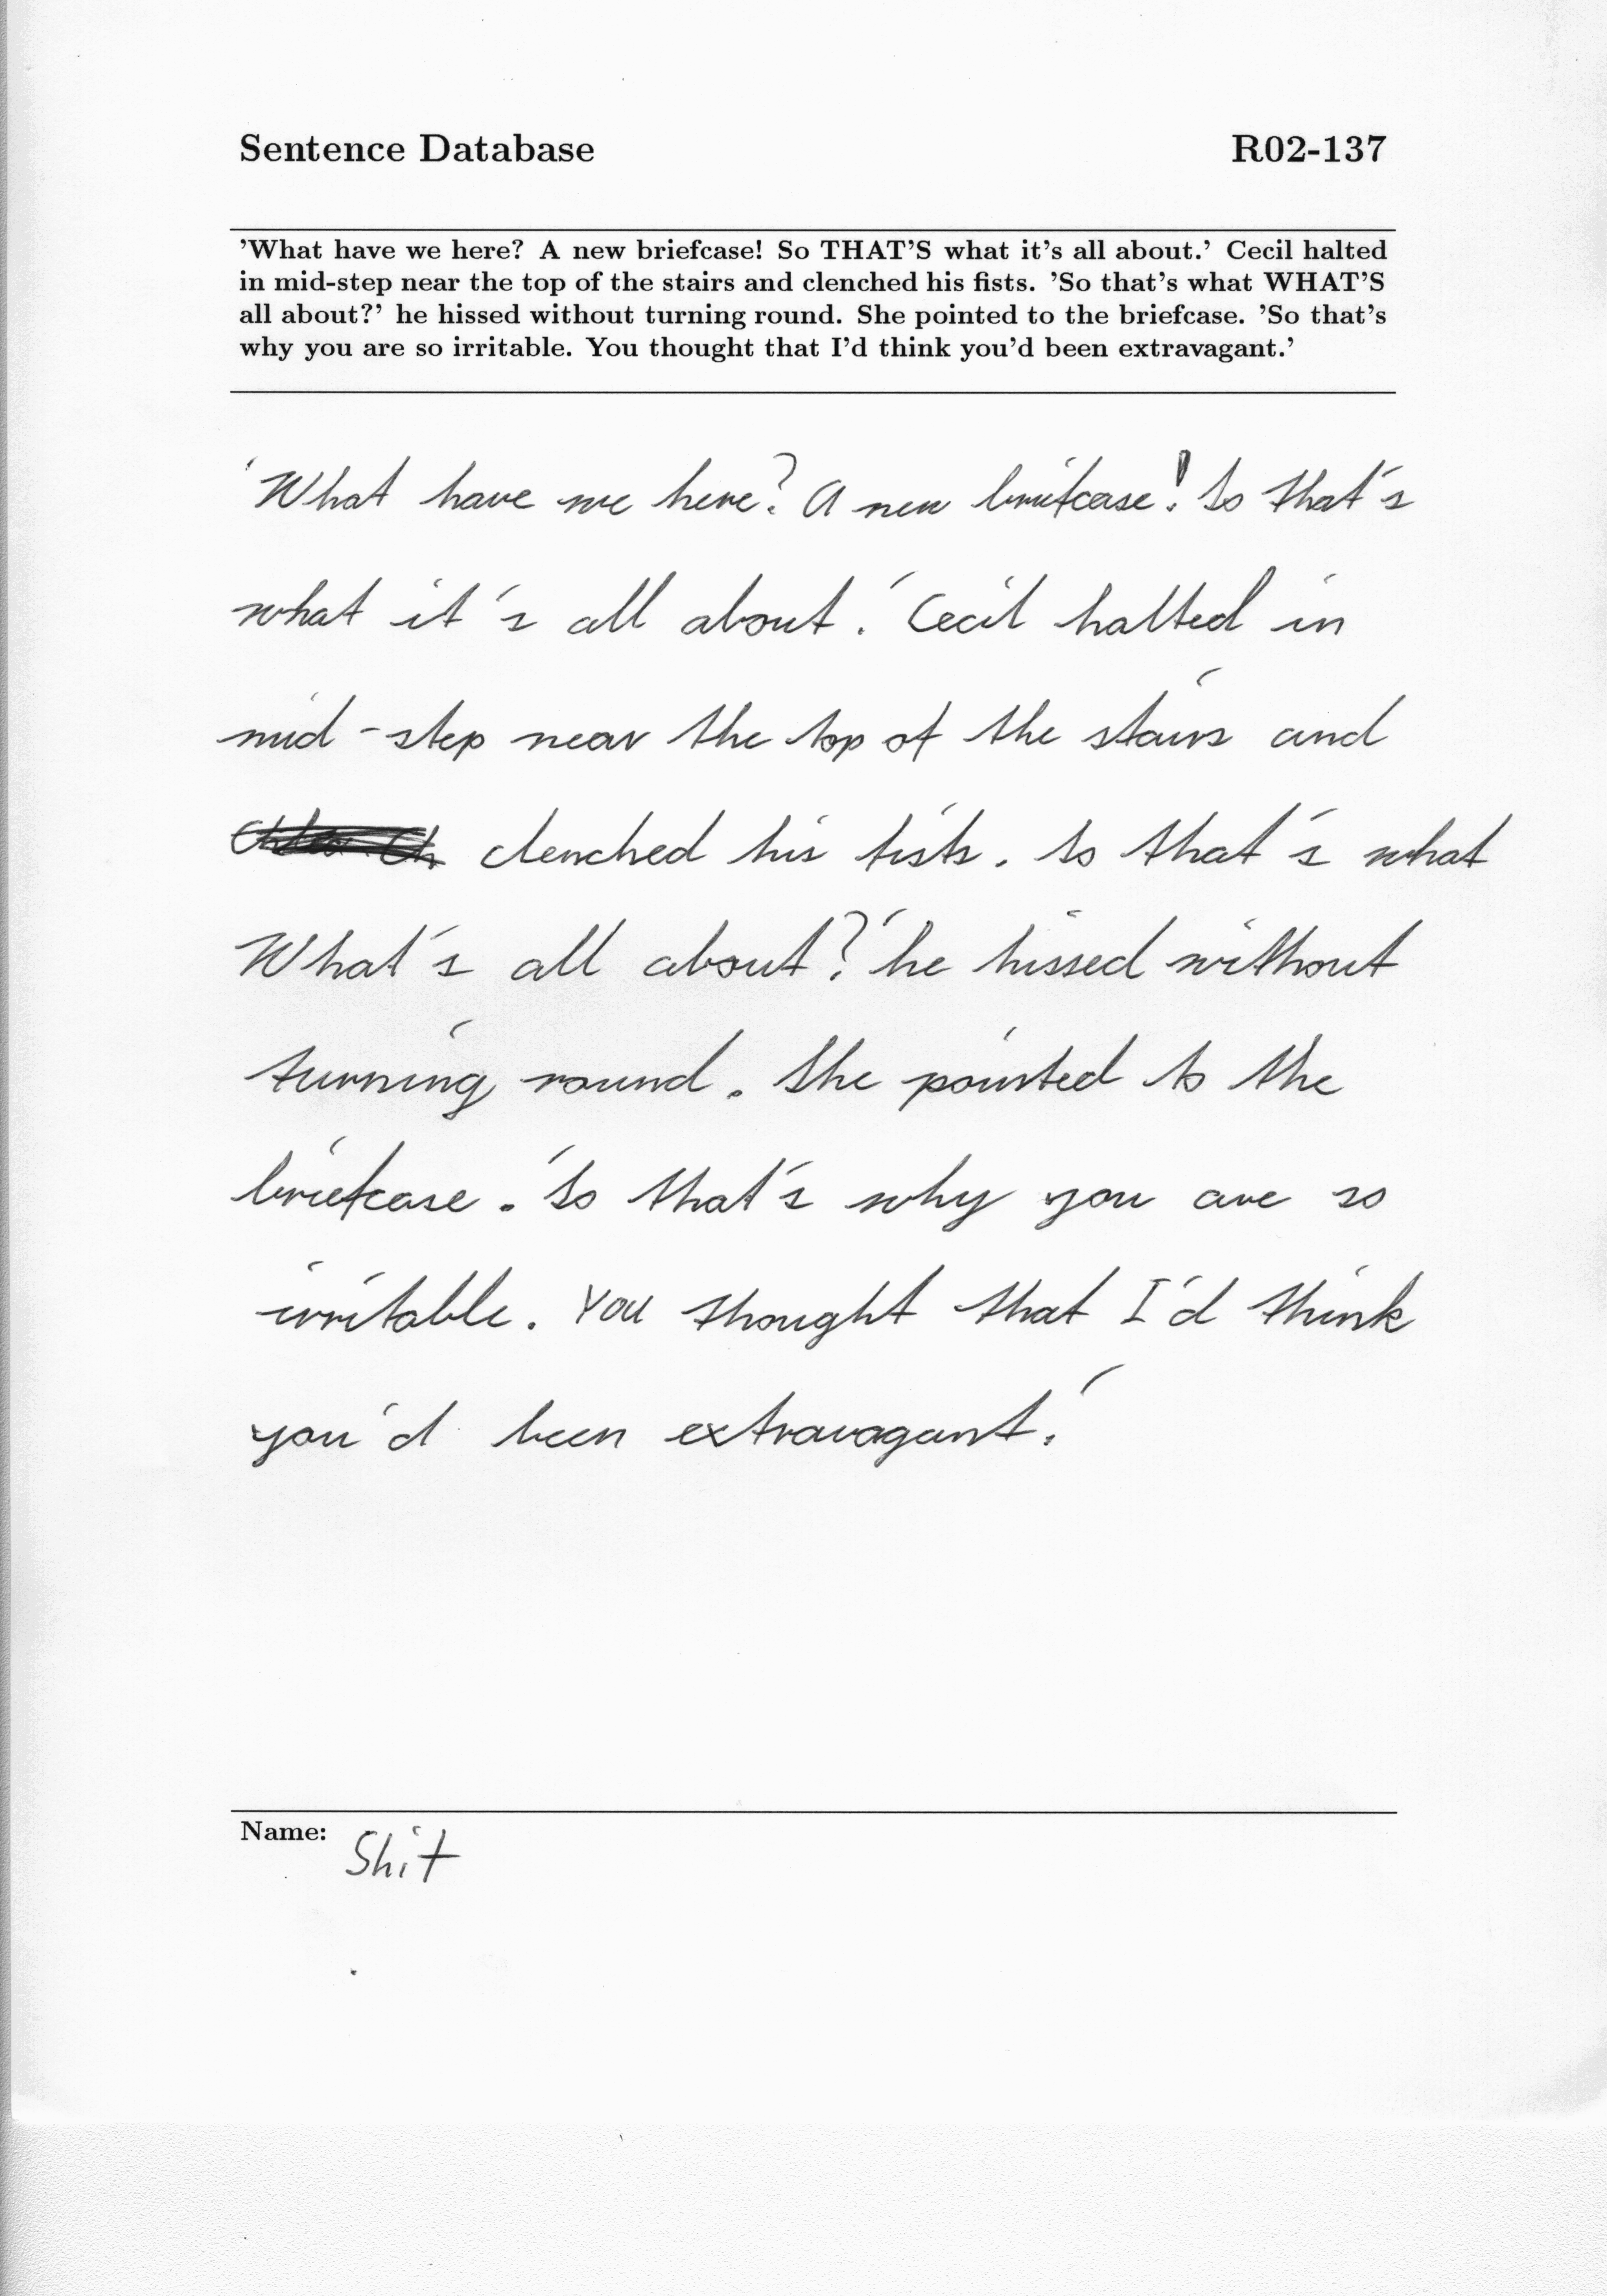 Sentence Database R02-137
'What have we here? A new briefcase! So THAT'S what it's all about.' Cecil halted
in mid-step near the top of the stairs and clenched his fists. 'So that's what WHAT'S
all about?' he hissed without turning round. She pointed to the briefcase. 'So that's
why you are so irritable. You thought that I'd think you'd been extravagant.'
'What have we here? A new briefcase! So that's
what it's all about.' Cecil halted in
mid-step near the top of the stairs and
clenched his fists. So that's what
What's all about?' he hissed without
turning round. She pointed to the
briefcase. 'So that's why you are so
irritable. You thought that I'd think
you'd been extravagant.'
Name: Shit